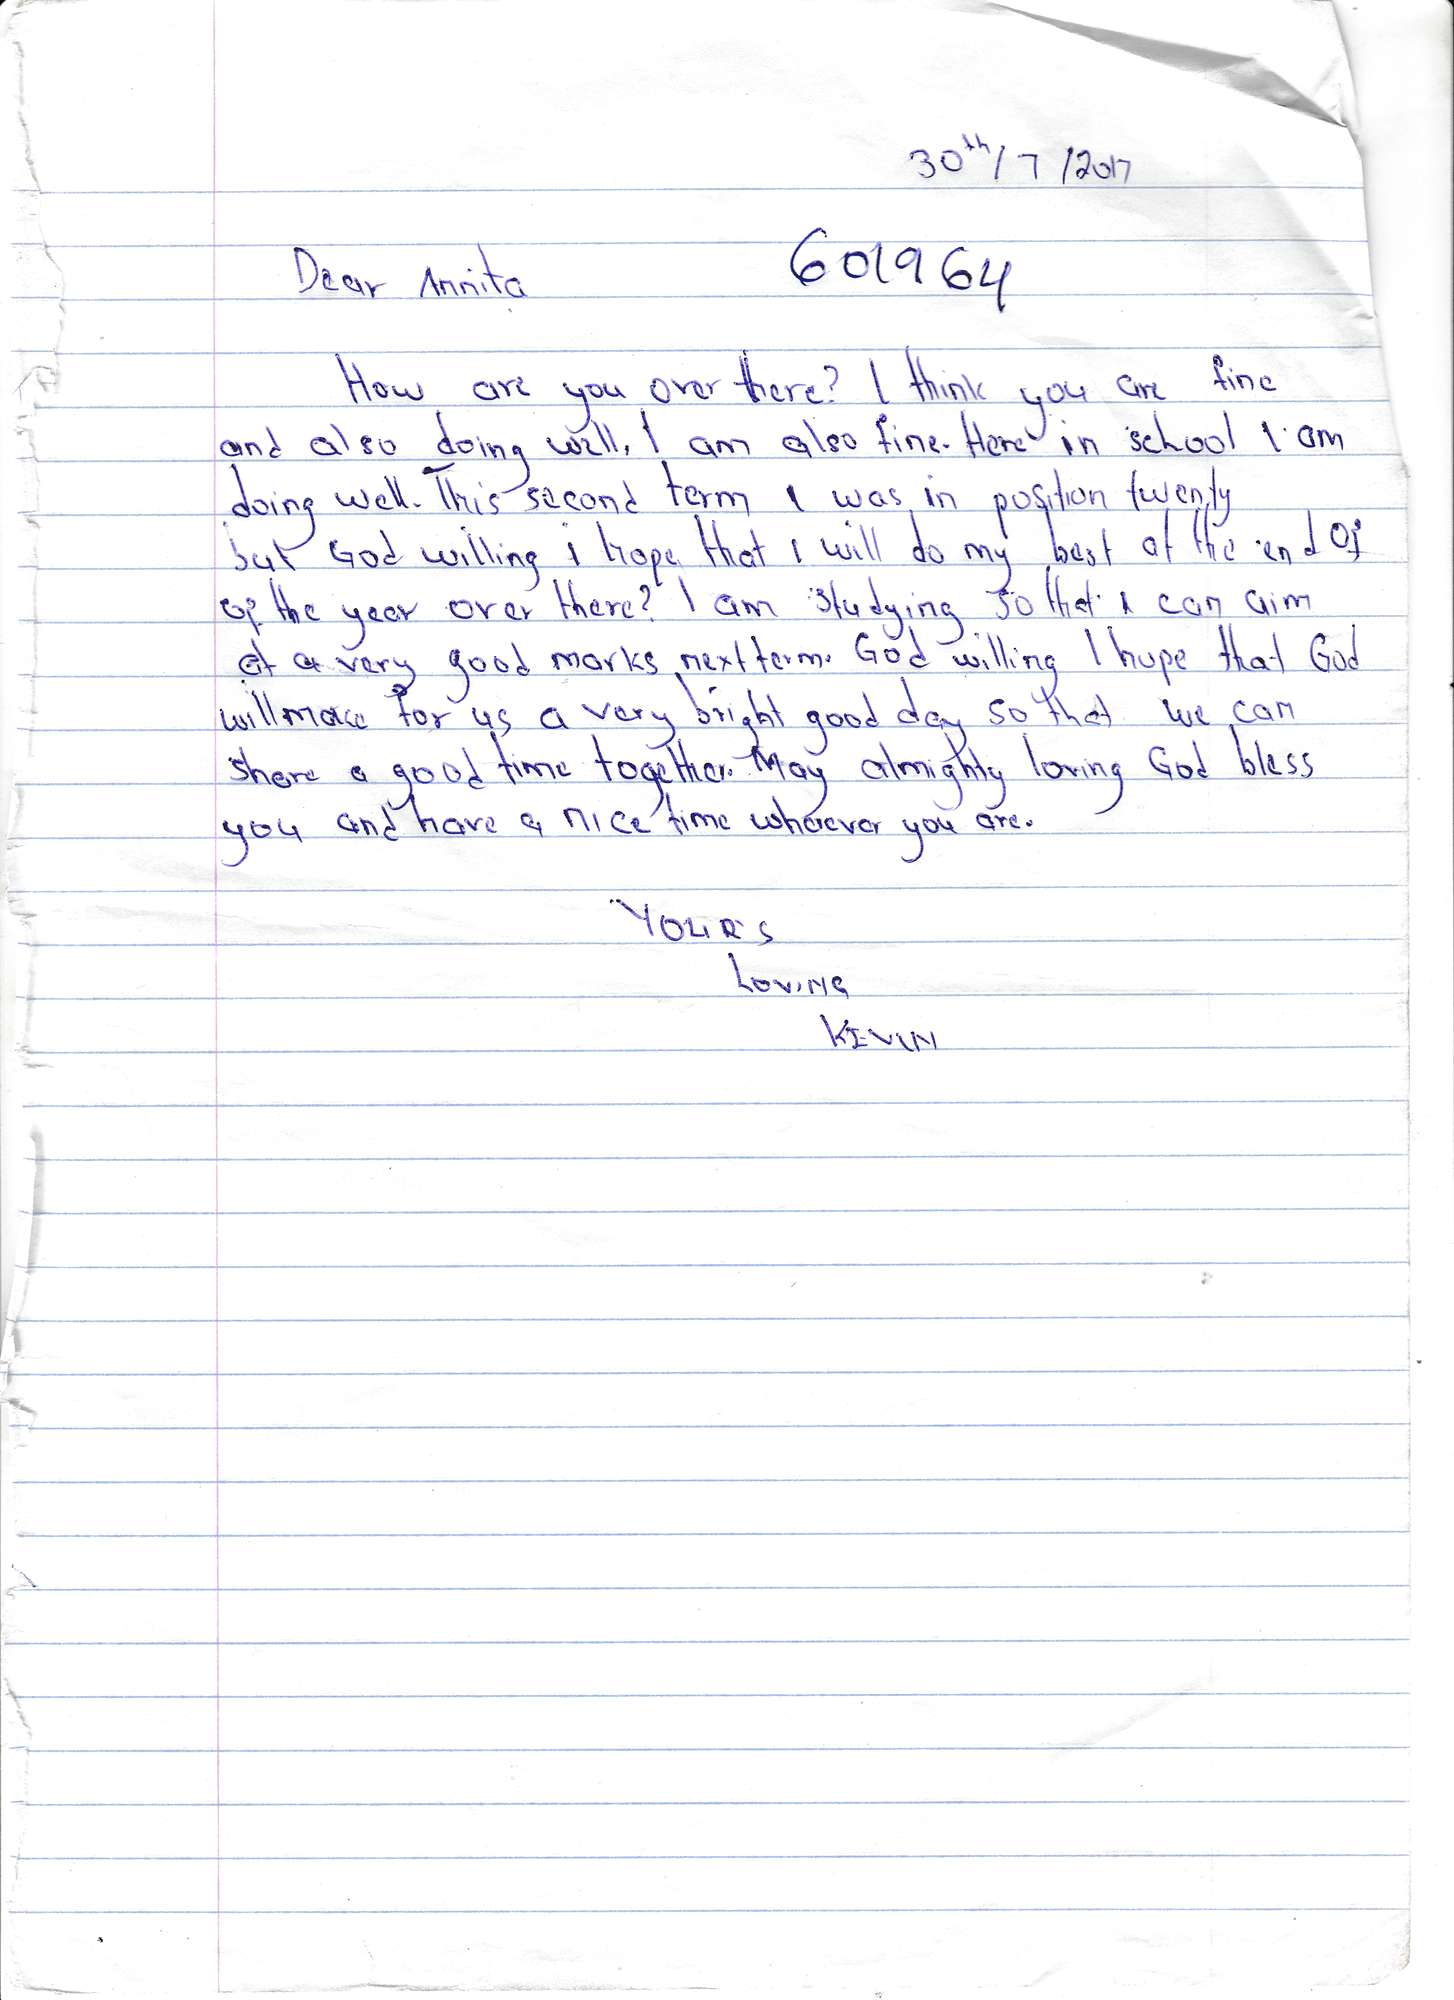 30th/7/2017
Dear Annita 601964
How are you over there? I think you are fine
and also doing well. I am also fine. Here in school I am
doing well. This second term I was in position twenty
but God willing i hope that I will do my best at the end of
of the year over there? I am studying so that I can aim
at a very good marks next term. God willing I hope that God
will make for us a very bright good day so that we can
share a good time together. May almighty loving God bless
you and have a nice time wherever you are.
YOURS
LOVING
KEVIN